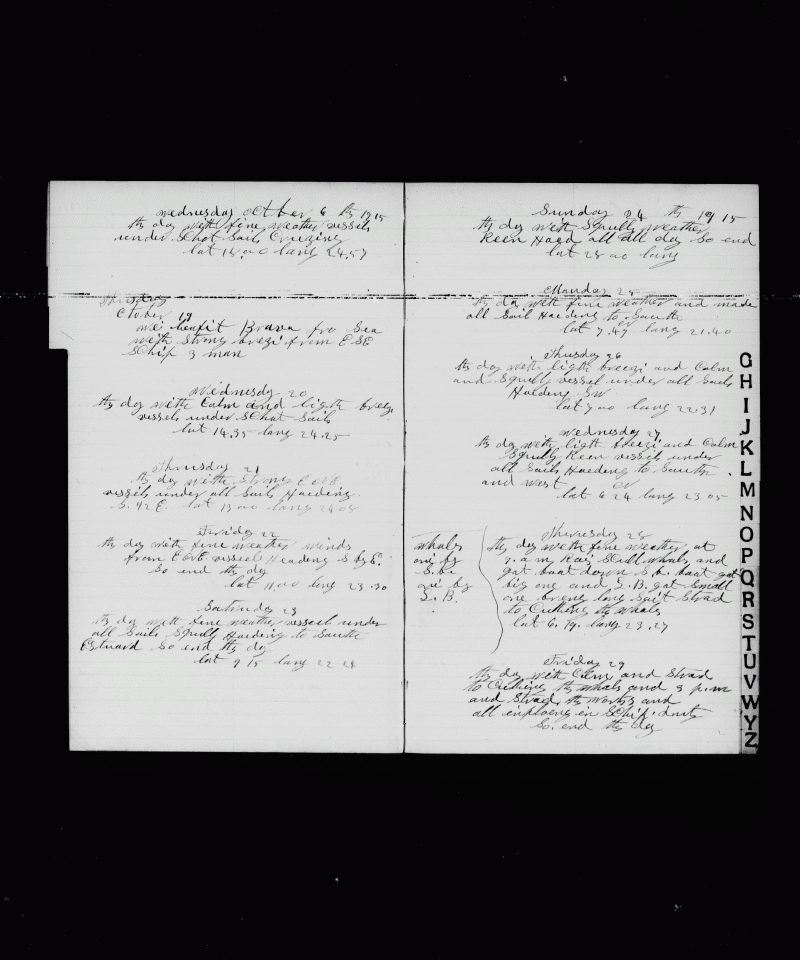 Wednesday October 6 th 1915
th day with fine weather vessels
under Shot Sails Cruizing
lat 15.00 long 24.57
Thusday
Ctober 19
we Brava fro Sea
with Strong brezi from ESE
SChip 3 man
Wiednesdy 20
th day with Calm and ligth breezi
vessels under SChot Sails
lat 14.35 long 24.25
Thrusday 21
th day with Strong
vessels under all Sails Haeding
S. 42 E. lat 13 00 long 24 08
Friday 22
th day with fine weather winds
from E vessels Heading S by E.
So end th day
lat 11.00 long 23.30
Satruday 23
th day with fine weather vessel under
all Sails Squlls Haeding to Southe
Estward So end th day
lat 9 15 long 22 28
Sunday 24 th 1915
th day with Squlls weather
Keen Haed all all day So end
lat 28 00 long
Monday 25
th day with fine weather and made
all Sail Haeding to Southe
SW
lat 7.47 long 21.40
Thusday 26
th day with ligth breezi and Calm
and Squlls vessel under all Sails
Haeding SW
lat 7 00 long 22.31
Wednesday 27
th day with ligth breezi and Calm
Squlls Keen vessels under
all Sails Haeding to Southe
and west
lat 6 24 long 23 05
whales
one by
S.b.
one by
L. B.
Thruesday 28
th day with fine weather at
7. a m Whals and
gat boat down S b. boat gat
big one and L.B. gat Small
one long Sait Strad
to Cuthing th whales
lat 6.19. long 23.27
Friday 29
th day with Calm and Strad
to Cuthing th whals and 3 p.m
and Strad th works and
all in SChip. duty
So. end th day
G
H
I
J
K
L
M
N
O
P
Q
R
S
T
U
V
W
Y
Z